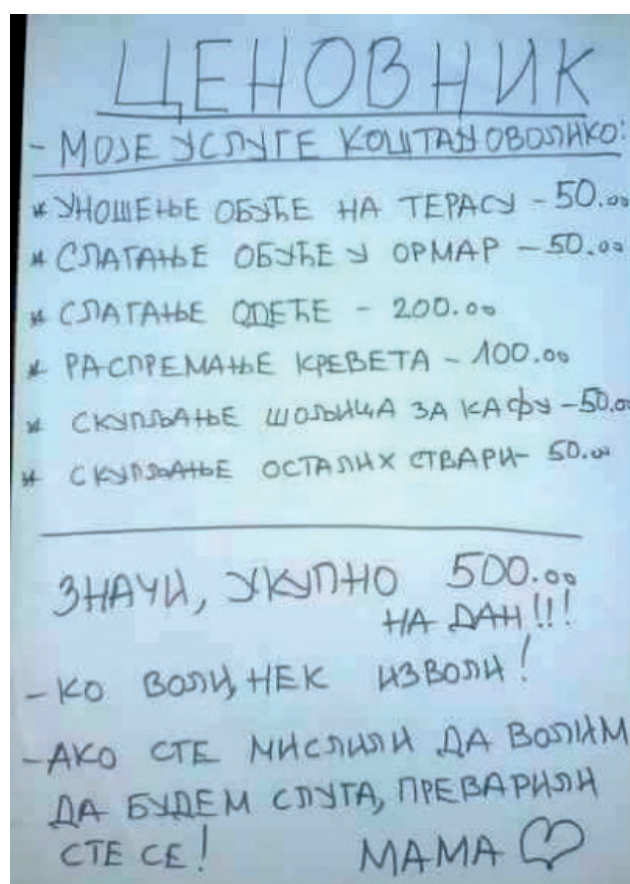 ЦЕНОВНИК
- МОЈЕ УСЛУГЕ КОШТАЈУ ОВОЛИКО:
* УНОШЕЊЕ ОБУЋЕ НА ТЕРАСУ - 50.00
* СЛАГАЊЕ ОБУЋЕ У ОРМАР - 50.00
* СЛАГАЊЕ ОДЕЋЕ - 200.00
* РАСПРЕМАЊЕ КРЕВЕТА - 100.00
* СКУПЉАЊЕ ШОЉИЦА ЗА КАФУ - 50.00
* СКУПЉАЊЕ ОСТАЛИХ СТВАРИ - 50.00
ЗНАЧИ, УКУПНО 500.00
НА ДАН!!!
- КО ВОЛИ, НЕК ИЗВОЛИ!
- АКО СТЕ МИСЛИЛИ ДА ВОЛИМ
ДА БУДЕМ СЛУГА, ПРЕВАРИЛИ
СТЕ СЕ! МАМА ♡